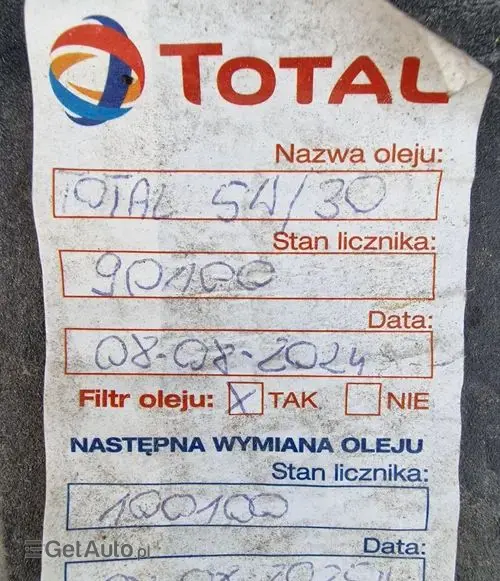 TOTAL
Nazwa oleju:
TOTAL 5W/30
Stan licznika:
90100
Data:
08-08-2024
Filtr oleju: X TAK NIE
NASTĘPNA WYMIANA OLEJU
Stan licznika:
100100
Data:
GetAuto.pl